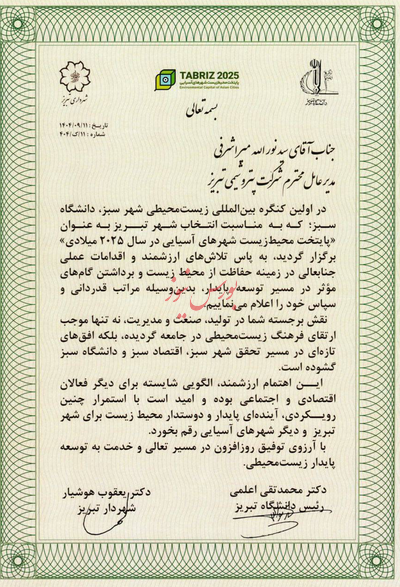 TABRIZ 2025
پایتخت محیط‌زیست شهرهای آسیایی
Environmental Capital of Asian Cities
شهرداری تبریز
دانشگاه تبریز
بسمه تعالی
تاریخ: ۱۴۰۴/۰۹/۱۱
شماره: ۱۱/ک/۴۰۴
جناب آقای سید نورالله میراشرفی
مدیرعامل محترم شرکت پتروشیمی تبریز
در اولین کنگره بین‌المللی زیست‌محیطی شهر سبز، دانشگاه
سبز؛ که به مناسبت انتخاب شهر تبریز به عنوان
«پایتخت محیط‌زیست شهرهای آسیایی در سال ۲۰۲۵ میلادی»
برگزار گردید، به پاس تلاش‌های ارزشمند و اقدامات عملی
جنابعالی در زمینه حفاظت از محیط زیست و برداشتن گام‌های
مؤثر در مسیر توسعه پایدار، بدین‌وسیله مراتب قدردانی و
سپاس خود را اعلام می‌نماییم.
نقش برجسته شما در تولید، صنعت و مدیریت، نه تنها موجب
ارتقای فرهنگ زیست‌محیطی در جامعه گردیده، بلکه افق‌های
تازه‌ای در مسیر تحقق شهر سبز، اقتصاد سبز و دانشگاه سبز
گشوده است.
این اهتمام ارزشمند، الگویی شایسته برای دیگر فعالان
اقتصادی و اجتماعی بوده و امید است با استمرار چنین
رویکردی، آینده‌ای پایدار و دوستدار محیط زیست برای شهر
تبریز و دیگر شهرهای آسیایی رقم بخورد.
با آرزوی توفیق روزافزون در مسیر تعالی و خدمت به توسعه
پایدار زیست‌محیطی.
دکتر محمدتقی اعلمی
رئیس دانشگاه تبریز
دکتر یعقوب هوشیار
شهردار تبریز
بورس نیوز